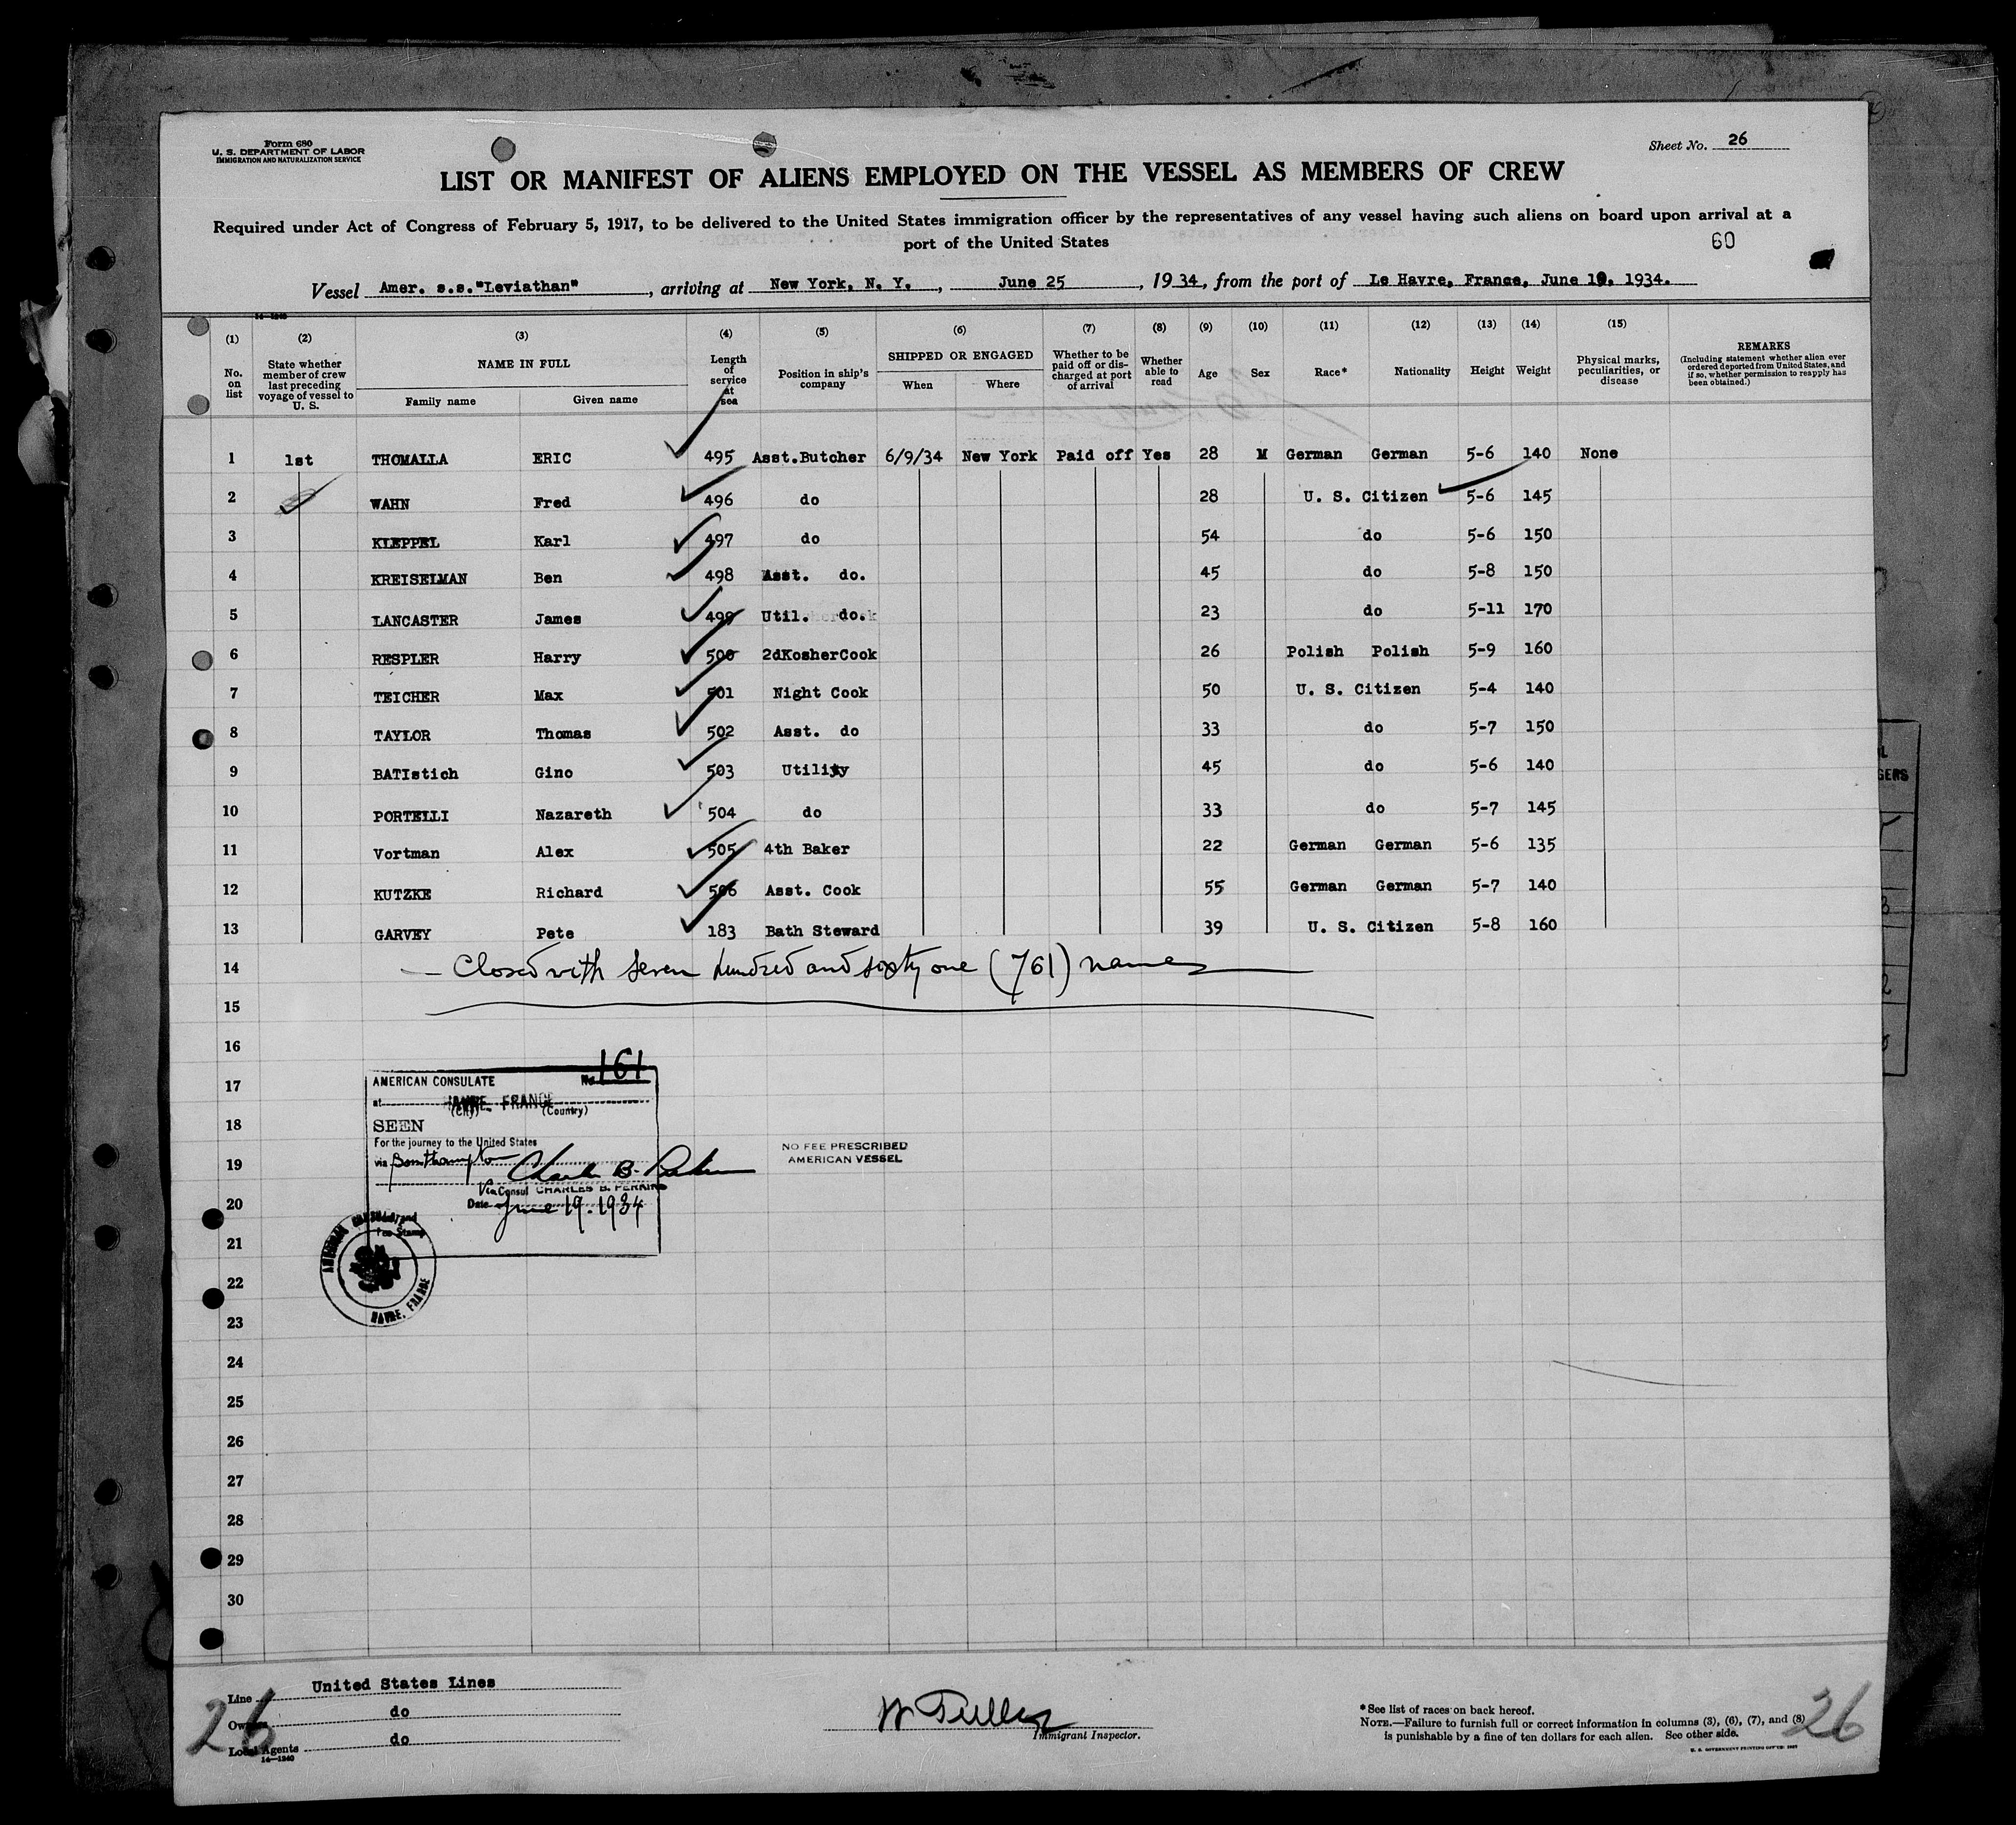 Form 680
U. S. DEPARTMENT OF LABOR
IMMIGRATION AND NATURALIZATION SERVICE
Sheet No. 26
LIST OR MANIFEST OF ALIENS EMPLOYED ON THE VESSEL AS MEMBERS OF CREW
Required under Act of Congress of February 5, 1917, to be delivered to the United States immigration officer by the representatives of any vessel having such aliens on board upon arrival at a
port of the United States
60
Vessel Amer. s.s."Leviathan", arriving at New York, N. Y., June 25, 1934, from the port of Le Havre, France, June 19, 1934.
(1) (2) (3) (4) (5) (6) (7) (8) (9) (10) (11) (12) (13) (14) (15)
No. on list
State whether member of crew last preceding voyage of vessel to U. S.
NAME IN FULL
Family name Given name
Length of service at sea
Position in ship's company
SHIPPED OR ENGAGED
When Where
Whether to be paid off or discharged at port of arrival
Whether able to read
Age Sex Race* Nationality Height Weight
Physical marks, peculiarities, or disease
REMARKS
(Including statement whether alien ever ordered deported from United States, and if so, whether permission to reapply has been obtained.)
1 1st THOMALLA ERIC 495 Asst.Butcher 6/9/34 New York Paid off Yes 28 M German German 5-6 140 None
2 WAHN Fred 496 do 28 U. S. Citizen 5-6 145
3 KLEPPEL Karl 497 do 54 do 5-6 150
4 KREISELMAN Ben 498 Asst. do. 45 do 5-8 150
5 LANCASTER James 499 Util. do. 23 do 5-11 170
6 RESPLER Harry 500 2dKosherCook 26 Polish Polish 5-9 160
7 TEICHER Max 501 Night Cook 50 U. S. Citizen 5-4 140
8 TAYLOR Thomas 502 Asst. do 33 do 5-7 150
9 BATIstich Gino 503 Utility 45 do 5-6 140
10 PORTELLI Nazareth 504 do 33 do 5-7 145
11 Vortman Alex 505 4th Baker 22 German German 5-6 135
12 KUTZKE Richard 506 Asst. Cook 55 German German 5-7 140
13 GARVEY Pete 183 Bath Steward 39 U. S. Citizen 5-8 160
14 Closed with seven hundred and sixty one (761) names
15
16
17
18
19
20
21
22
23
24
25
26
27
28
29
30
AMERICAN CONSULATE No. 161
at HAVRE, FRANCE
(City) (Country)
SEEN
For the journey to the United States
via Southampton
Vice Consul CHARLES B. PERKINS
Date June 19. 1934
Fee Stamp
AMERICAN CONSULATE
HAVRE, FRANCE
NO FEE PRESCRIBED
AMERICAN VESSEL
Line United States Lines
Owners do
Local Agents do
14-1240
26
Immigrant Inspector.
*See list of races on back hereof.
NOTE.—Failure to furnish full or correct information in columns (3), (6), (7), and (8)
is punishable by a fine of ten dollars for each alien. See other side.
26